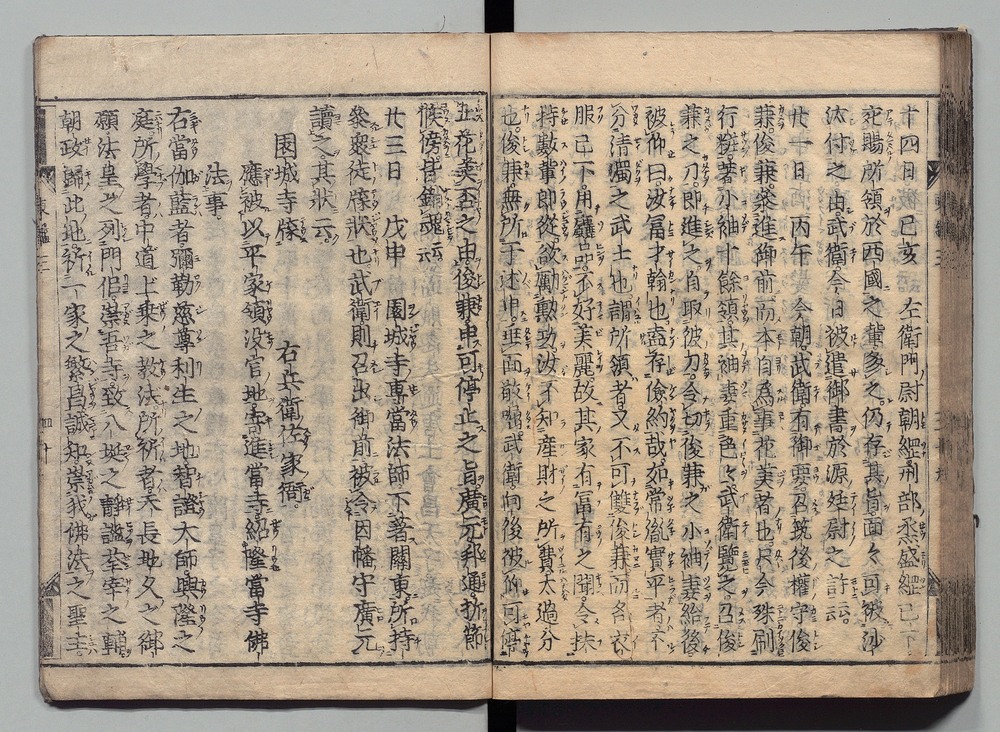 十四日 己亥 左衛門尉朝經刑部烝盛經已下
充賜所領於西國之輩多之仍存其旨面々可被沙
汰付之由武衛今日被遣御書於源廷尉之許云云
廿一日 丙午 今朝武衛有御要召筑後權守俊
兼俊兼參進御前而本自爲事花美者也只今殊刷
行粧著小袖十餘領其袖妻重色々武衛覽之召俊
兼之刀即進之自取彼刀令切俊兼之小袖妻給後
被仰曰汝冨才翰也盍存儉約哉如常胤實平者不
分清濁之武士也謂所領者又不可雙俊兼而各衣
服已下用麤品不好美麗故其家有冨有之聞令扶
持數輩郎從欲勵勲功汝不知産財之所費太過分
也俊兼無所于述申垂面敬屈武衛向後被仰可停
止花美否之由俊兼申可停止之旨廣元邦通折節
候傍皆銷魂云云
廿三日 戊申 園城寺專當法師下著關東所持
參衆徒牒狀也武衛則召出御前被令因幡守廣元
讀之其狀云
園城寺牒 右兵衛佐家衙
應被以平家領没官地等寺進當寺紹隆當寺佛
法事
右當伽藍者彌勒慈尊利生之地智證大師興隆之
庭所學者中道上乘之教法所祈者天長地久之御
願法皇之列門侶葉吾寺致八埏之靜謐莖宰之輔
朝政歸此地祈一家之繁昌誠知崇我佛法之聖主